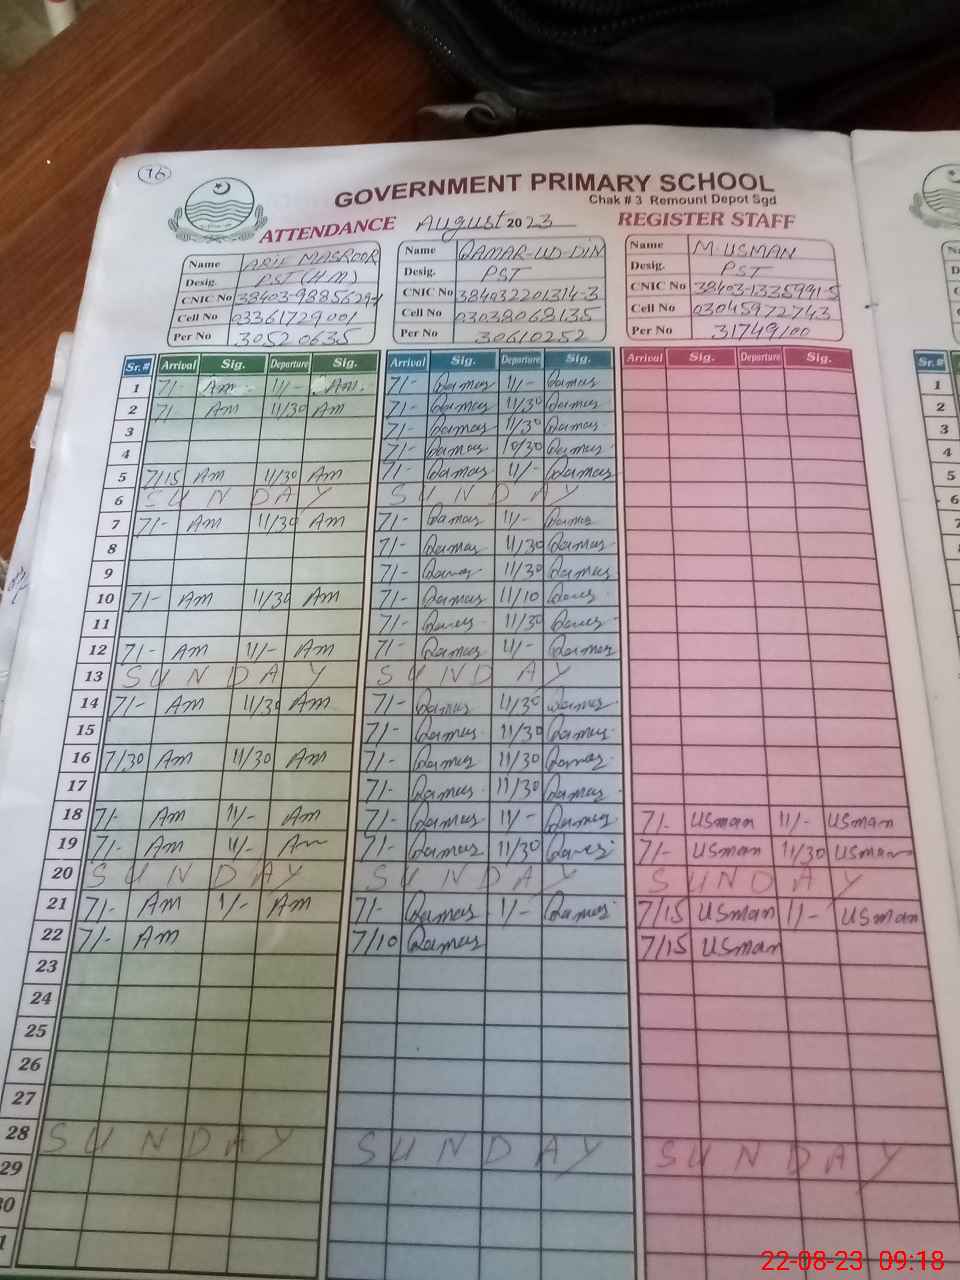 16
GOVERNMENT PRIMARY SCHOOL
Chak # 3 Remount Depot Sgd
ATTENDANCE August 2023 REGISTER STAFF
Name ARIF MASROOR Name QAMAR-UD-DIN Name M USMAN
Desig. PST (H.M) Desig. PST Desig. PST
CNIC No 38403-9885629-1 CNIC No 384032201314-3 CNIC No 38403-1335991-5
Cell No 03361729001 Cell No 03038068135 Cell No 03045972743
Per No 30520635 Per No 30610252 Per No 31749100
Sr. # Arrival Sig. Departure Sig. Arrival Sig. Departure Sig. Arrival Sig. Departure Sig. Sr. #
1 7/- Am 11/- Am 7/- Qamar 11/- Qamar 1
2 7/ Am 11/30 Am 7/- Qamar 11/30 Qamar 2
3 7/- Qamar 11/30 Qamar 3
4 7/- Qamar 10/30 Qamar 4
5 7/15 Am 11/30 Am 7/- Qamar 11/- Qamar 5
6 SUNDAY SUNDAY 6
7 7/- Am 11/30 Am 7/- Qamar 11/- Qamar 7
8 7/- Qamar 11/30 Qamar
9 7/- Qamar 11/30 Qamar
10 7/- Am 11/30 Am 7/- Qamar 11/10 Qamar
11 7/- Qamar 11/30 Qamar
12 7/- Am 11/- Am 7/- Qamar 11/- Qamar
13 SUNDAY SUNDAY
14 7/- Am 11/30 Am 7/- Qamar 11/30 Qamar
15 7/- Qamar 11/30 Qamar
16 7/30 Am 11/30 Am 7/- Qamar 11/30 Qamar
17 7/- Qamar 11/30 Qamar
18 7/- Am 11/- Am 7/- Qamar 11/- Qamar 7/- Usman 11/- Usman
19 7/- Am 11/- Am 7/- Qamar 11/30 Qamar 7/- Usman 11/30 Usman
20 SUNDAY SUNDAY SUNDAY
21 7/- Am 1/- Am 7/- Qamar 1/- Qamar 7/15 Usman 1/- Usman
22 7/- Am 7/10 Qamar 7/15 Usman
23
24
25
26
27
28 SUNDAY SUNDAY SUNDAY
29
30
1
22-08-23 09:18